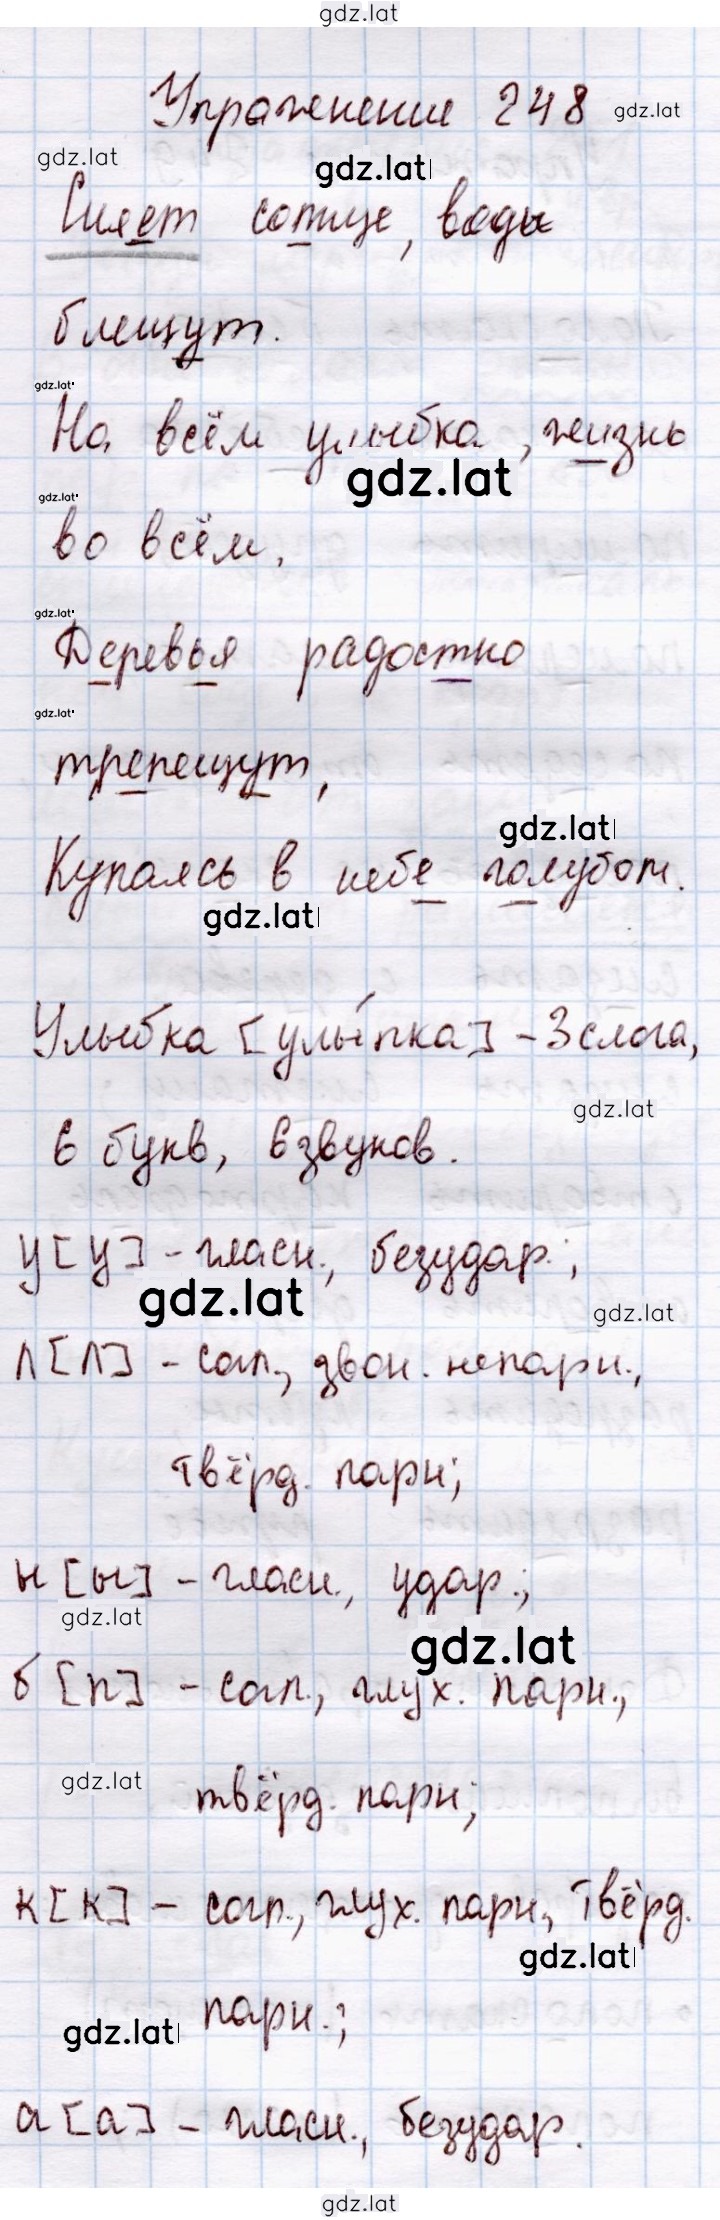 gdz.lat
Упражнение 248
gdz.lat
gdz.lat
gdz.lat
Сияет солнце, воды
блещут.
gdz.lat
На всём улыбка, жизнь
gdz.lat
gdz.lat
во всём,
gdz.lat
Деревья радостно
gdz.lat
трепещут,
gdz.lat
Купаясь в небе голубом.
gdz.lat
Улыбка [улы́пка] - 3 слога,
gdz.lat
6 букв, 6 звуков.
у [у] - гласн., безудар.;
gdz.lat
gdz.lat
л [л] - согл., звон. непарн.,
твёрд. парн;
ы [ы] - гласн., удар.;
gdz.lat
gdz.lat
б [п] - согл., глух. парн.,
gdz.lat
твёрд. парн;
к [к] - согл., глух. парн., твёрд.
gdz.lat
парн.;
gdz.lat
а [а] - гласн., безудар.
gdz.lat